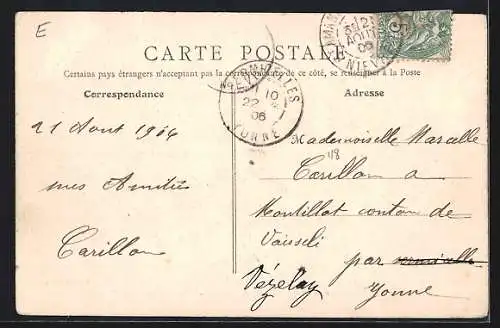 E
CARTE POSTALE
Certains pays étrangers n'acceptant pas la correspondance de ce côté, se renseigner à la Poste
Correspondance
Adresse
10
22
06
YONNE
AOUT
06
NIEVRE
21 Aout 1906
mes Amitiés
Carillon
Mademoiselle Marcelle
118
Carillon a
Montillot canton de
par
Vézelay
Yonne